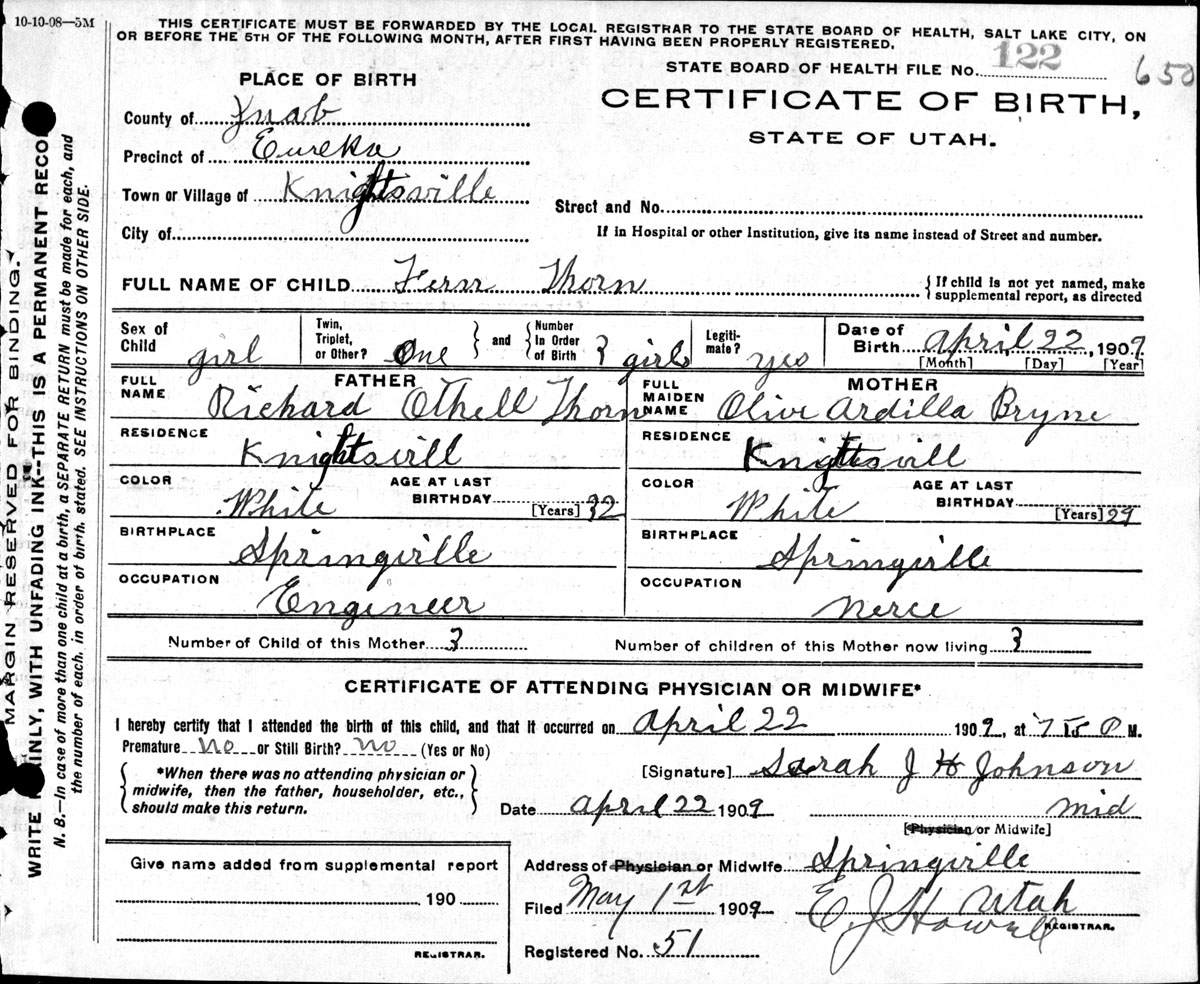 10-10-08—5M
THIS CERTIFICATE MUST BE FORWARDED BY THE LOCAL REGISTRAR TO THE STATE BOARD OF HEALTH, SALT LAKE CITY, ON
OR BEFORE THE 5TH OF THE FOLLOWING MONTH, AFTER FIRST HAVING BEEN PROPERLY REGISTERED.
STATE BOARD OF HEALTH FILE No. 122 650
PLACE OF BIRTH
CERTIFICATE OF BIRTH,
STATE OF UTAH.
County of Juab
Precinct of Eureka
Town or Village of Knightsville
Street and No.
City of
If in Hospital or other Institution, give its name instead of Street and number.
FULL NAME OF CHILD Fern Thorn
{If child is not yet named, make
supplemental report, as directed
Sex of Child girl
Twin, Triplet, or Other? One } and { Number In Order of Birth 3 girls
Legiti-mate? yes
Date of Birth April 22, 1909
[Month] [Day] [Year]
FATHER
FULL NAME Richard Othell Thorn
RESIDENCE Knightsvill
COLOR White AGE AT LAST BIRTHDAY 32 [Years]
BIRTHPLACE Springville
OCCUPATION Engineer
MOTHER
FULL MAIDEN NAME Olive Ardilla Bryne
RESIDENCE Knightsvill
COLOR White AGE AT LAST BIRTHDAY [Years] 29
BIRTHPLACE Springville
OCCUPATION Nerce
Number of Child of this Mother 3 Number of children of this Mother now living 3
CERTIFICATE OF ATTENDING PHYSICIAN OR MIDWIFE*
I hereby certify that I attended the birth of this child, and that it occurred on April 22 1909, at 7 15 P M.
Premature no or Still Birth? no (Yes or No)
{ *When there was no attending physician or
midwife, then the father, householder, etc.,
should make this return. }
[Signature] Sarah J H Johnson
Date April 22 1909 Mid
[Physician or Midwife]
Address of Physician or Midwife Springville
Utah
Filed May 1st 1909 E. J. Howell
REGISTRAR.
Registered No. 51
Give name added from supplemental report
190
REGISTRAR.
MARGIN RESERVED FOR BINDING.
WRITE PLAINLY, WITH UNFADING INK--THIS IS A PERMANENT RECO
N. B.—In case of more than one child at a birth, a SEPARATE RETURN must be made for each, and
the number of each, in order of birth, stated. SEE INSTRUCTIONS ON OTHER SIDE.